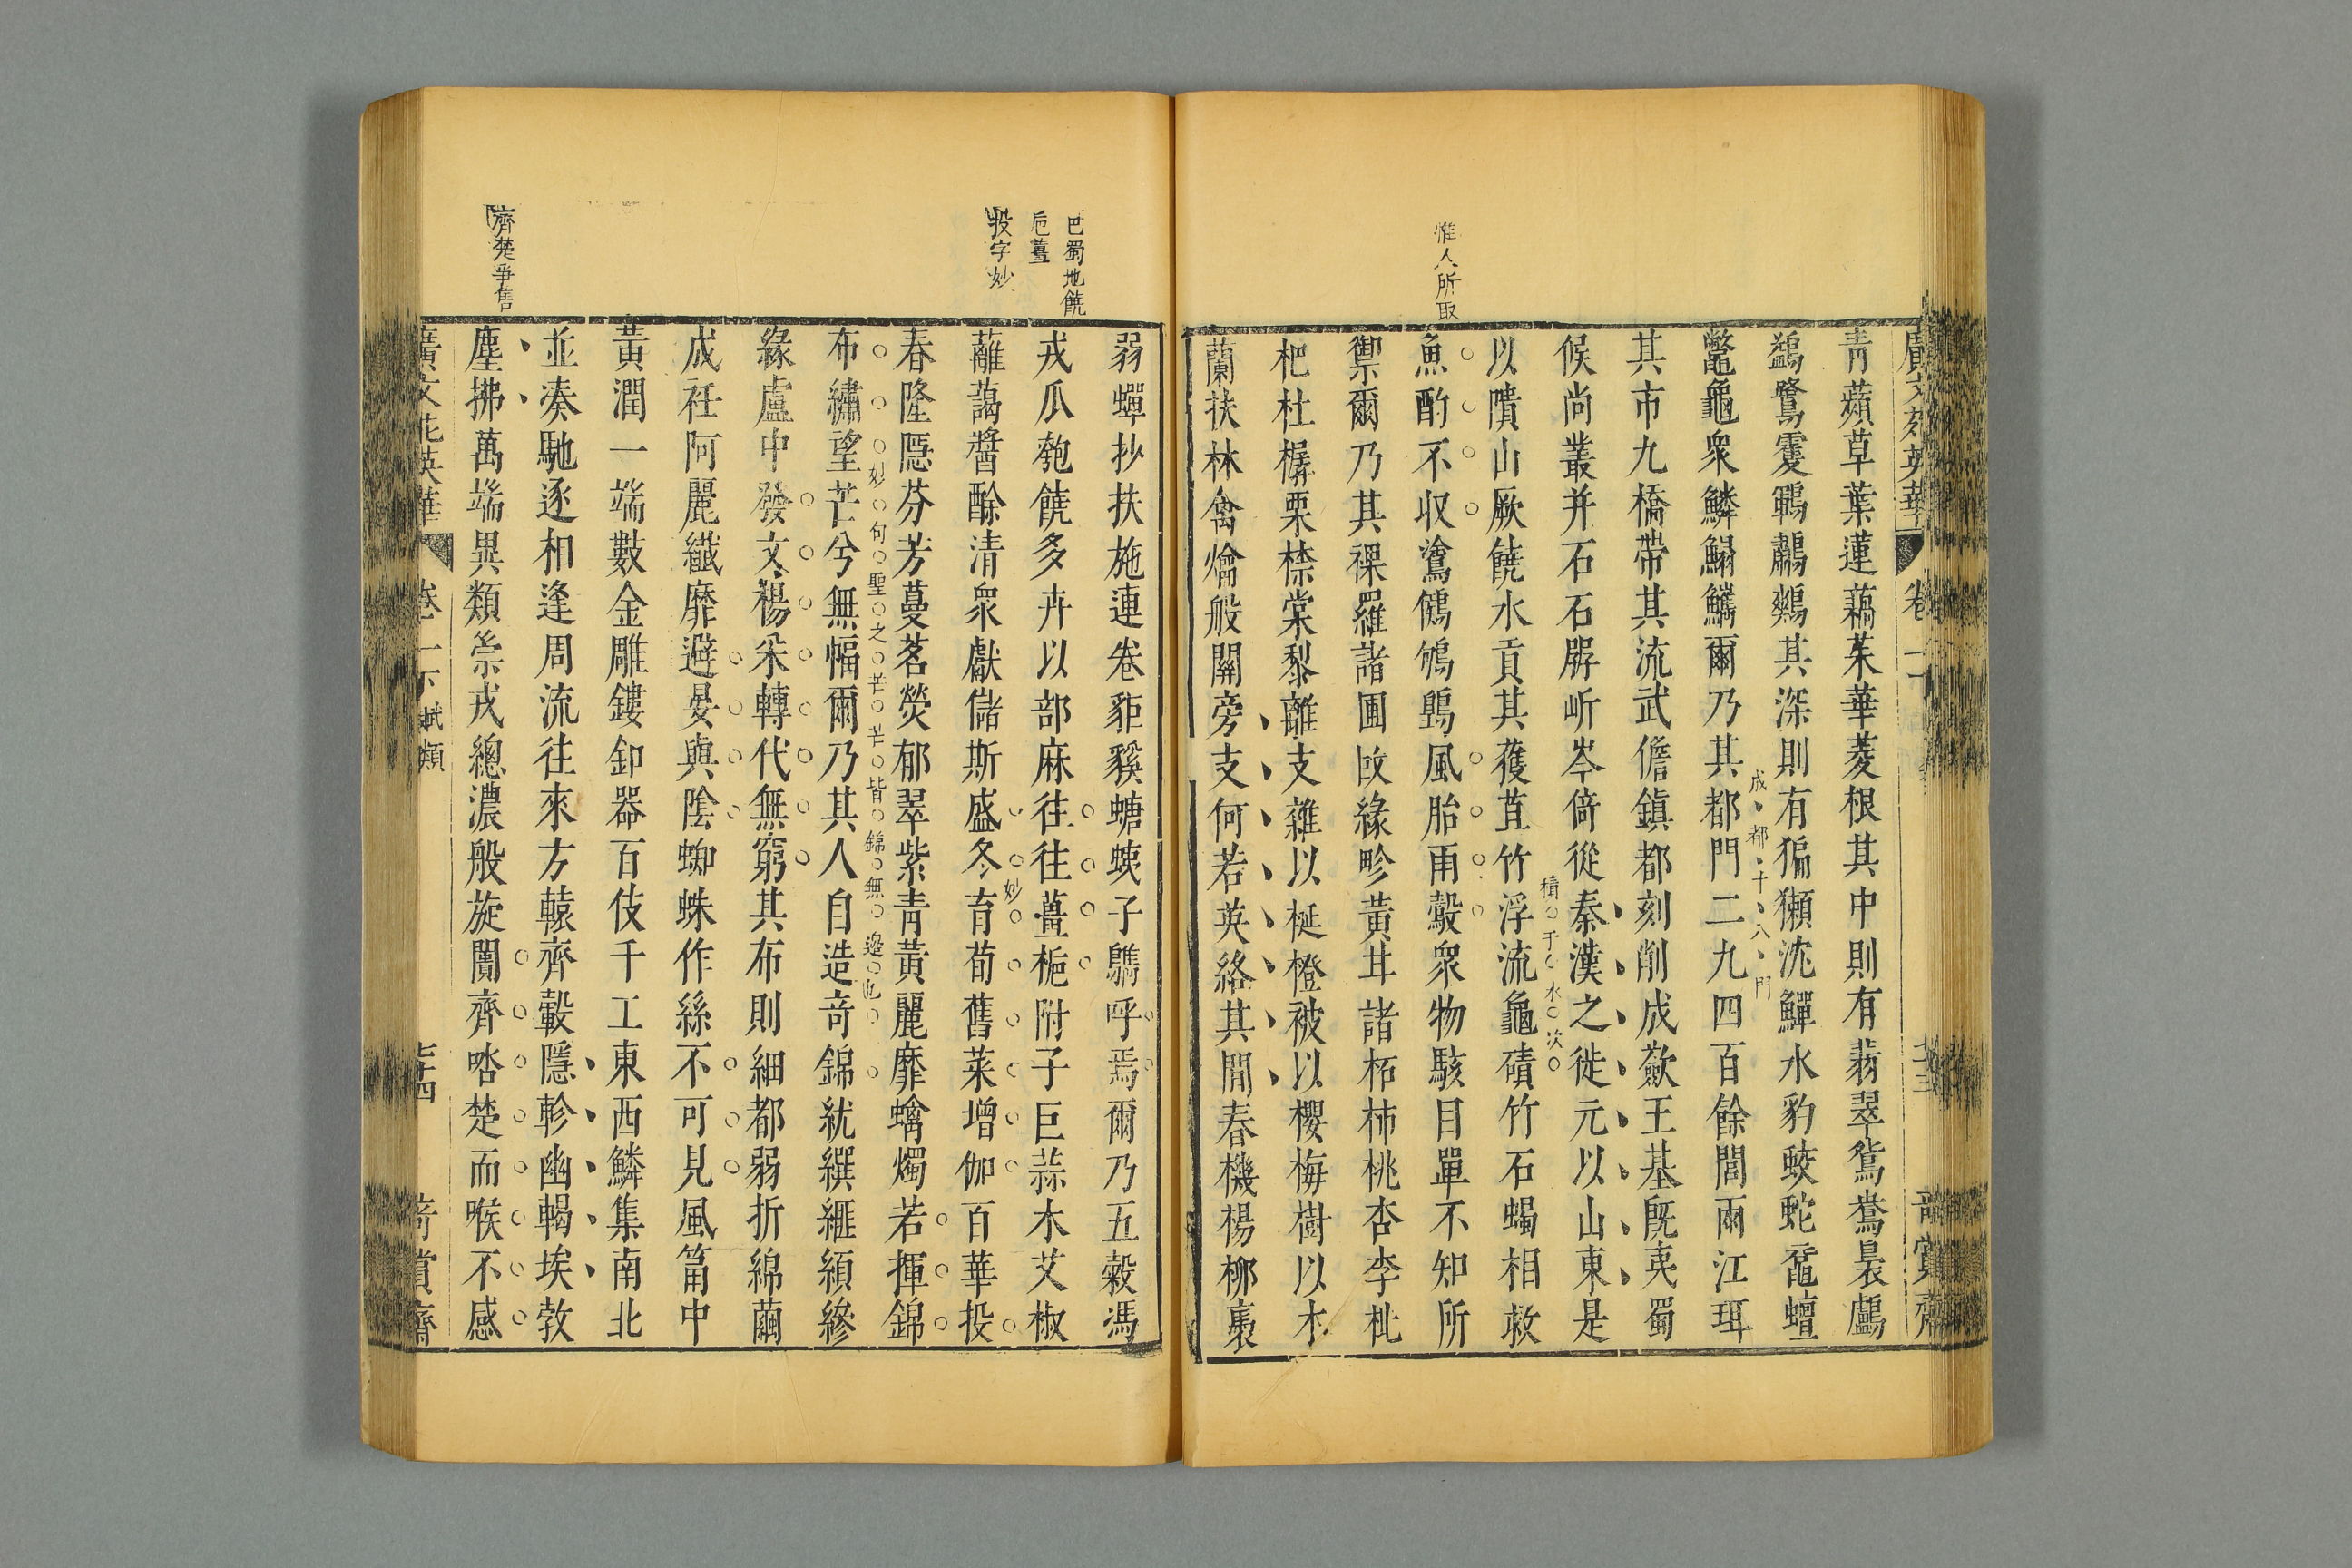 廣文苑英華 卷一下
奇賞齋
青蘋草葉蓮藕茱華菱根其中則有翡翠鴛鴦裊鸕
鷁鷺䨥鶤鷫鷞其深則有猵獺沈鱓水豹蛟蛇黿鱣
鼈龜衆鱗鰨䲛爾乃其都門二九四百餘閭兩江珥
成都十八門
其市九橋帶其流武儋鎭都刻削成蘞王基旣夷蜀
侯尚叢并石石屖㟁岑倚從秦漢之徙元以山東是
以隤山厥饒水貢其獲苴竹浮流龜磧竹石蝎相救
魚酌不収鵻鶂鴝鷃風胎雨鷇衆物駭目單不知所
惟人所取
禦爾乃其裸羅諸圃㽿緣畛黄甘諸柘柿桃杏李枇
杷杜樼栗㮏棠黎離支雜以梴橙被以櫻梅樹以木
蘭扶林禽爚般關旁支何若英絡其間春機楊柳裊
弱蟬抄扶施連卷䝙貕螗蛦子鶂呼焉爾乃五榖馮
戎瓜匏饒多卉以部麻往往薑梔附子巨蒜木艾椒
巴蜀地饒
巵薑
蘺藹醬酴清衆獻儲斯盛冬育荀舊菜增伽百華投
投字妙
春隆隱芬芳蔓茗熒郁翠紫靑黄麗靡螭燭若揮錦
布繡望芒兮無幅爾乃其人自造奇錦紌䌟䋿縜縿
妙句聖之芒芒皆錦無邉也
緣盧中發文楊釆轉代無窮其布則細都弱折綿繭
成衽阿麗纎靡避晏與陰蜘蛛作絲不可見風筩中
黃潤一端數金雕鏤釦器百伎千工東西鱗集南北
並湊馳逐相逢周流往來方轅齊轂隱軫幽輵埃敦
塵拂萬端異類崇戎總濃般旋闠齊㗳楚而喉不感
齊楚爭售
廣文苑英華 卷一下 賦類
奇賞齋